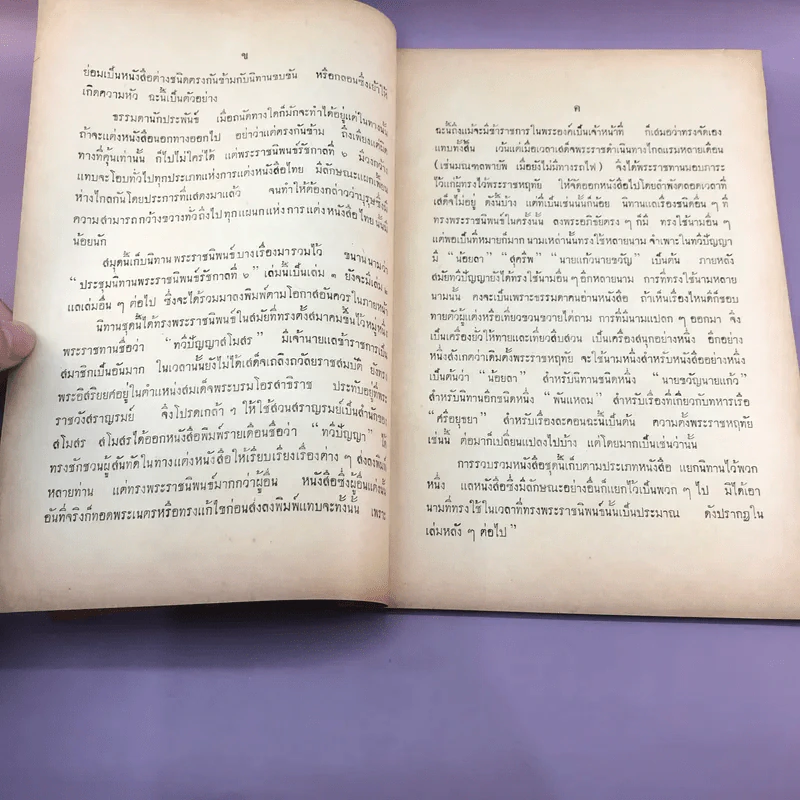 ข
ย่อมเป็นหนังสือต่างชนิดตรงกันข้ามกับนิทานขบขัน หรือกลอนซึ่งเย้าให้
เกิดความหัว ฉะนี้เป็นตัวอย่าง
ธรรมดานักประพันธ์ เมื่อถนัดทางใดก็มักจะทำได้อยู่แต่ในทางนั้น
ถ้าจะแต่งหนังสือนอกทางออกไป อย่าว่าแต่ตรงกันข้าม ถึงเพียงแต่ผิด
ทางที่คุ้นเท่านั้น ก็ไปไม่ใคร่ได้ แต่พระราชนิพนธ์รัชกาลที่ ๖ มีวงกว้าง
แทบจะโอบทั่วไปทุกประเภทแห่งการแต่งหนังสือไทย มีลักษณะแผกเพี้ยน
ห่างไกลกันโดยประการที่แสดงมาแล้ว จนทำให้ต้องกล่าวว่าบุรุษซึ่งมี
ความสามารถกว้างขวางทั่วถึงไปทุกแผนกแห่งการแต่งหนังสือไทย นั้นมี
น้อยนัก
สมุดนี้เก็บนิทานพระราชนิพนธ์บางเรื่องมารวมไว้ ขนานนามว่า
“ประชุมนิทานพระราชนิพนธ์รัชกาลที่ ๖” เล่มนี้เป็นเล่ม ๑ ยังจะมีเล่ม ๒
แลเล่มอื่น ๆ ต่อไป ซึ่งจะได้รวมมาลงพิมพ์ตามโอกาสอันควรในภายหน้า
นิทานชุดนี้ได้ทรงพระราชนิพนธ์ในสมัยที่ทรงตั้งสมาคมขึ้นไว้หมู่หนึ่ง
พระราชทานชื่อว่า “ทวีปัญญาสโมสร” มีเจ้านายแลข้าราชการเป็น
สมาชิกเป็นอันมาก ในเวลานั้นยังไม่ได้เสด็จเถลิงถวัลยราชสมบัติ ยังทรง
พระอิสริยยศอยู่ในตำแหน่งสมเด็จพระบรมโอรสาธิราช ประทับอยู่ที่พระ
ราชวังสราญรมย์ จึงโปรดเกล้า ฯ ให้ใช้สวนสราญรมย์เป็นสำนักของ
สโมสร สโมสรได้ออกหนังสือพิมพ์รายเดือนชื่อว่า “ทวีปัญญา” ได้
ทรงชักชวนผู้สันทัดในทางแต่งหนังสือให้เรียบเรียงเรื่องต่าง ๆ ส่งลงพิมพ์
หลายท่าน แต่ทรงพระราชนิพนธ์มากกว่าผู้อื่น หนังสือซึ่งผู้อื่นแต่งนั้น
อันที่จริงก็ทอดพระเนตรหรือทรงแก้ไขก่อนส่งลงพิมพ์แทบจะทั้งนั้น เพราะ
ค
ฉะนั้นถึงแม้จะมีข้าราชการในพระองค์เป็นเจ้าหน้าที่ ก็เสมอว่าทรงจัดเอง
แทบทั้งสิ้น เว้นแต่เมื่อเวลาเสด็จพระราชดำเนินทางไกลแรมหลายเดือน
(เช่นมณฑลพายัพ เมื่อยังไม่มีทางรถไฟ) จึงได้พระราชทานมอบภาระ
ไว้แก่ผู้ทรงไว้พระราชหฤทัย ให้จัดออกหนังสือไปโดยลำพังตลอดเวลาที่
เสด็จไม่อยู่ ดังนี้บ้าง แต่ที่เป็นเช่นนั้นก็น้อย นิทานแลเรื่องชนิดอื่น ๆ ที่
ทรงพระราชนิพนธ์ในครั้งนั้น ลงพระอภิธัยตรง ๆ ก็มี ทรงใช้นามอื่น ๆ
แต่พอเป็นที่หมายก็มาก นามเหล่านั้นทรงใช้หลายนาม จำเพาะในทวีปัญญา
มี “น้อยลา” “สุครีพ” “นายแก้วนายขวัญ” เป็นต้น ภายหลัง
สมัยทวีปัญญายังได้ทรงใช้นามอื่น ๆ อีกหลายนาม การที่ทรงใช้นามหลาย
นามนั้น คงจะเป็นเพราะธรรมดาคนอ่านหนังสือ ถ้าเห็นเรื่องไหนดีก็ชอบ
ทายตัวผู้แต่งหรือเที่ยวขวนขวายไต่ถาม การที่มีนามแปลก ๆ ออกมา จึง
เป็นเครื่องยั่วให้ทายแลเที่ยวสืบสวน เป็นเครื่องสนุกอย่างหนึ่ง อีกอย่าง
หนึ่งสังเกตว่าเดิมตั้งพระราชหฤทัย จะใช้นามหนึ่งสำหรับหนังสืออย่างหนึ่ง
เป็นต้นว่า “น้อยลา” สำหรับนิทานชนิดหนึ่ง “นายขวัญนายแก้ว”
สำหรับนิทานอีกชนิดหนึ่ง “พันแหลม” สำหรับเรื่องที่เกี่ยวกับทหารเรือ
“ศรีอยุธยา” สำหรับเรื่องละคอนฉะนี้เป็นต้น ความตั้งพระราชหฤทัย
เช่นนี้ ต่อมาก็เปลี่ยนแปลงไปบ้าง แต่โดยมากเป็นเช่นว่านั้น
การรวบรวมหนังสือชุดนี้เก็บตามประเภทหนังสือ แยกนิทานไว้พวก
หนึ่ง แลหนังสือซึ่งมีลักษณะอย่างอื่นก็แยกไว้เป็นพวก ๆ ไป มิได้เอา
นามที่ทรงใช้ในเวลาที่ทรงพระราชนิพนธ์นั้นเป็นประมาณ ดังปรากฏใน
เล่มหลัง ๆ ต่อไป”